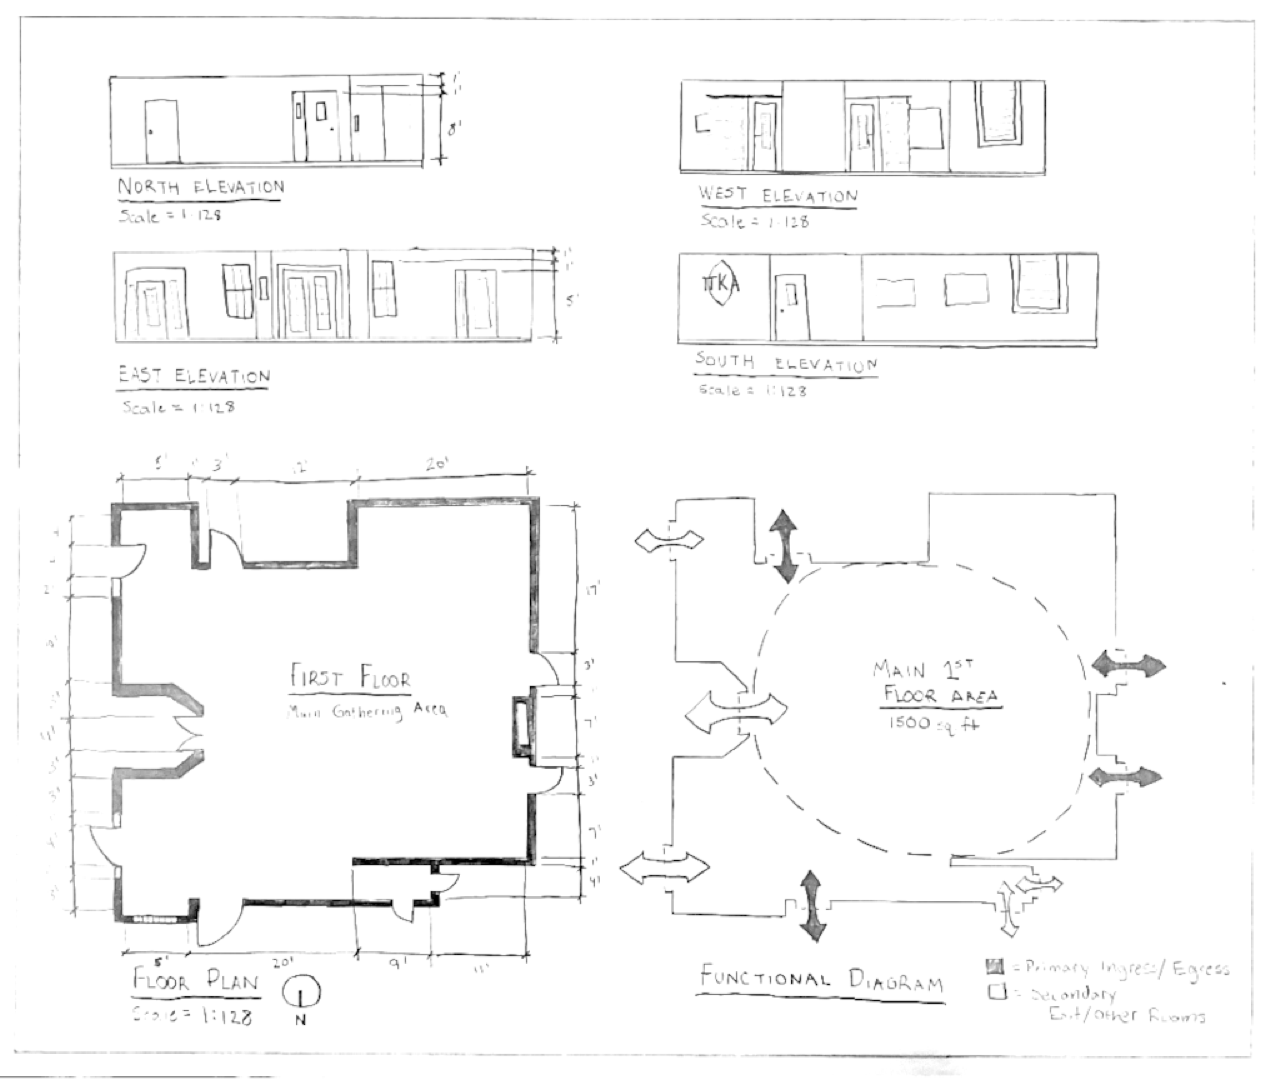 1'
1'
8'
NORTH ELEVATION
Scale = 1:128
WEST ELEVATION
Scale = 1:128
1'
1'
5'
EAST ELEVATION
Scale = 1:128
ΠKA
SOUTH ELEVATION
Scale = 1:128
5' 1' 3' 12' 20'
17'
3'
7'
3'
7'
1'
4'
2'
FIRST FLOOR
Main Gathering Area
5' 20' 9' 11'
FLOOR PLAN
Scale = 1:128
N
MAIN 1ST
FLOOR AREA
1500 sq ft
FUNCTIONAL DIAGRAM
= Primary Ingress/Egress
= Secondary
Exit/Other Rooms